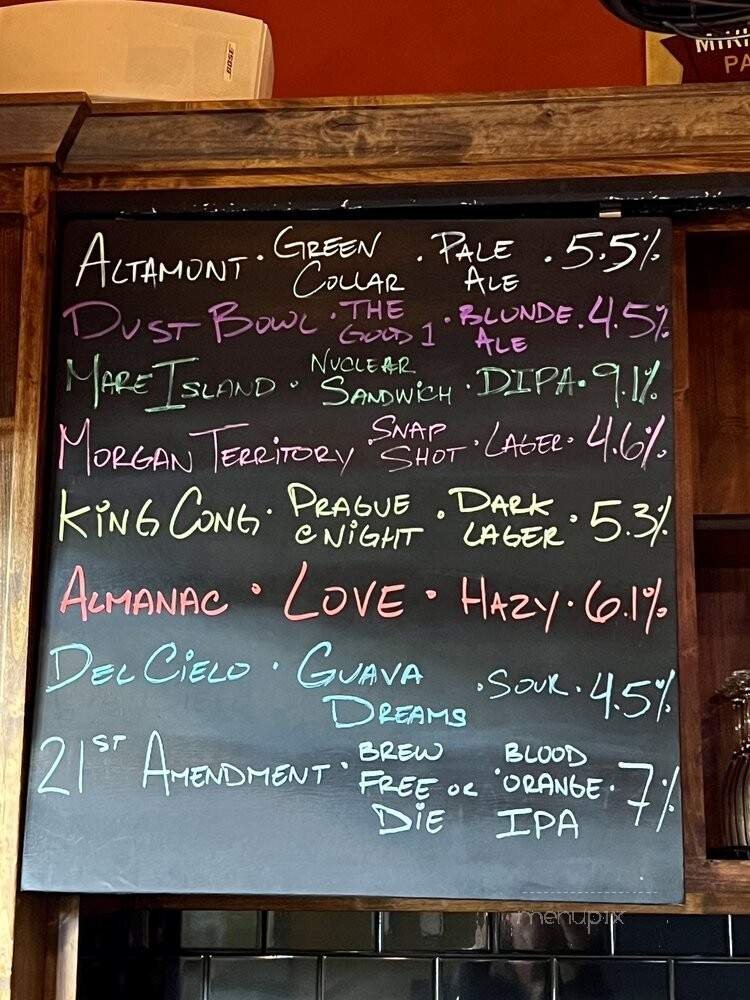 BOSE
ALTAMONT · GREEN COLLAR · PALE ALE · 5.5%
DUST BOWL · THE GOLD 1 · BLONDE ALE · 4.5%
MARE ISLAND · NUCLEAR SANDWICH · DIPA · 9.1%
MORGAN TERRITORY · SNAP SHOT · LAGER · 4.6%
KING CONG · PRAGUE @ NIGHT · DARK LAGER · 5.3%
ALMANAC · LOVE · HAZY · 6.1%
DEL CIELO · GUAVA DREAMS · SOUR · 4.5%
21ST AMENDMENT · BREW FREE OR DIE · BLOOD ORANGE IPA · 7%
menupix